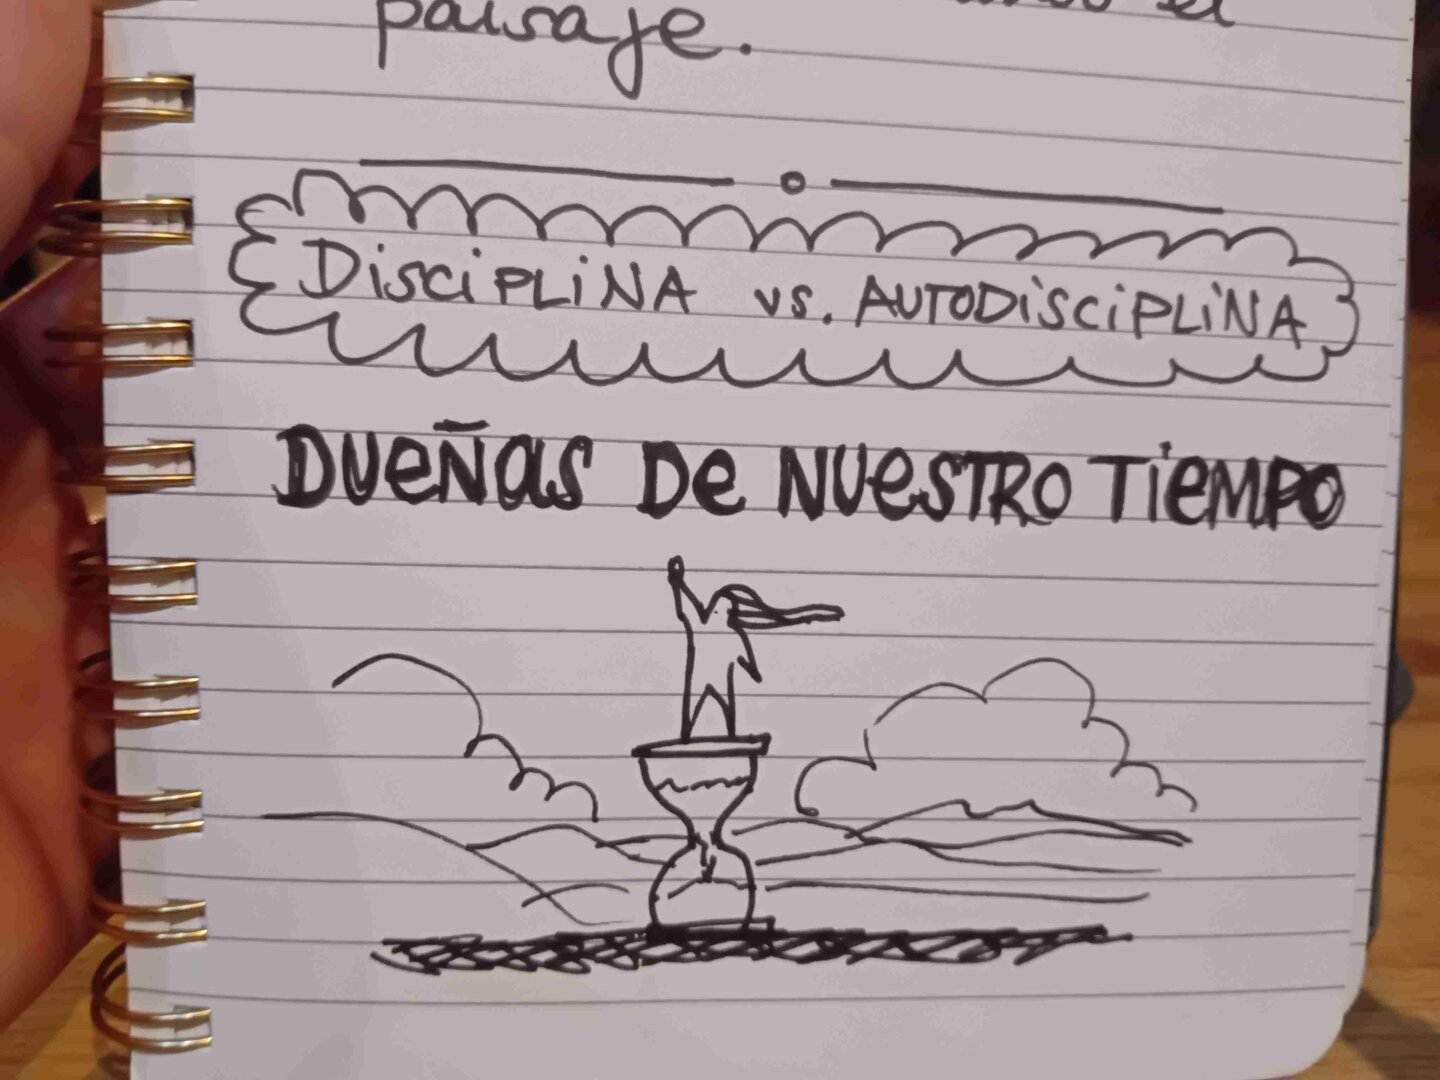 el
paisaje.
DisciPLiNA vs. AUTODisciPLiNA
DUeÑas De NUeSTRO TieMPO